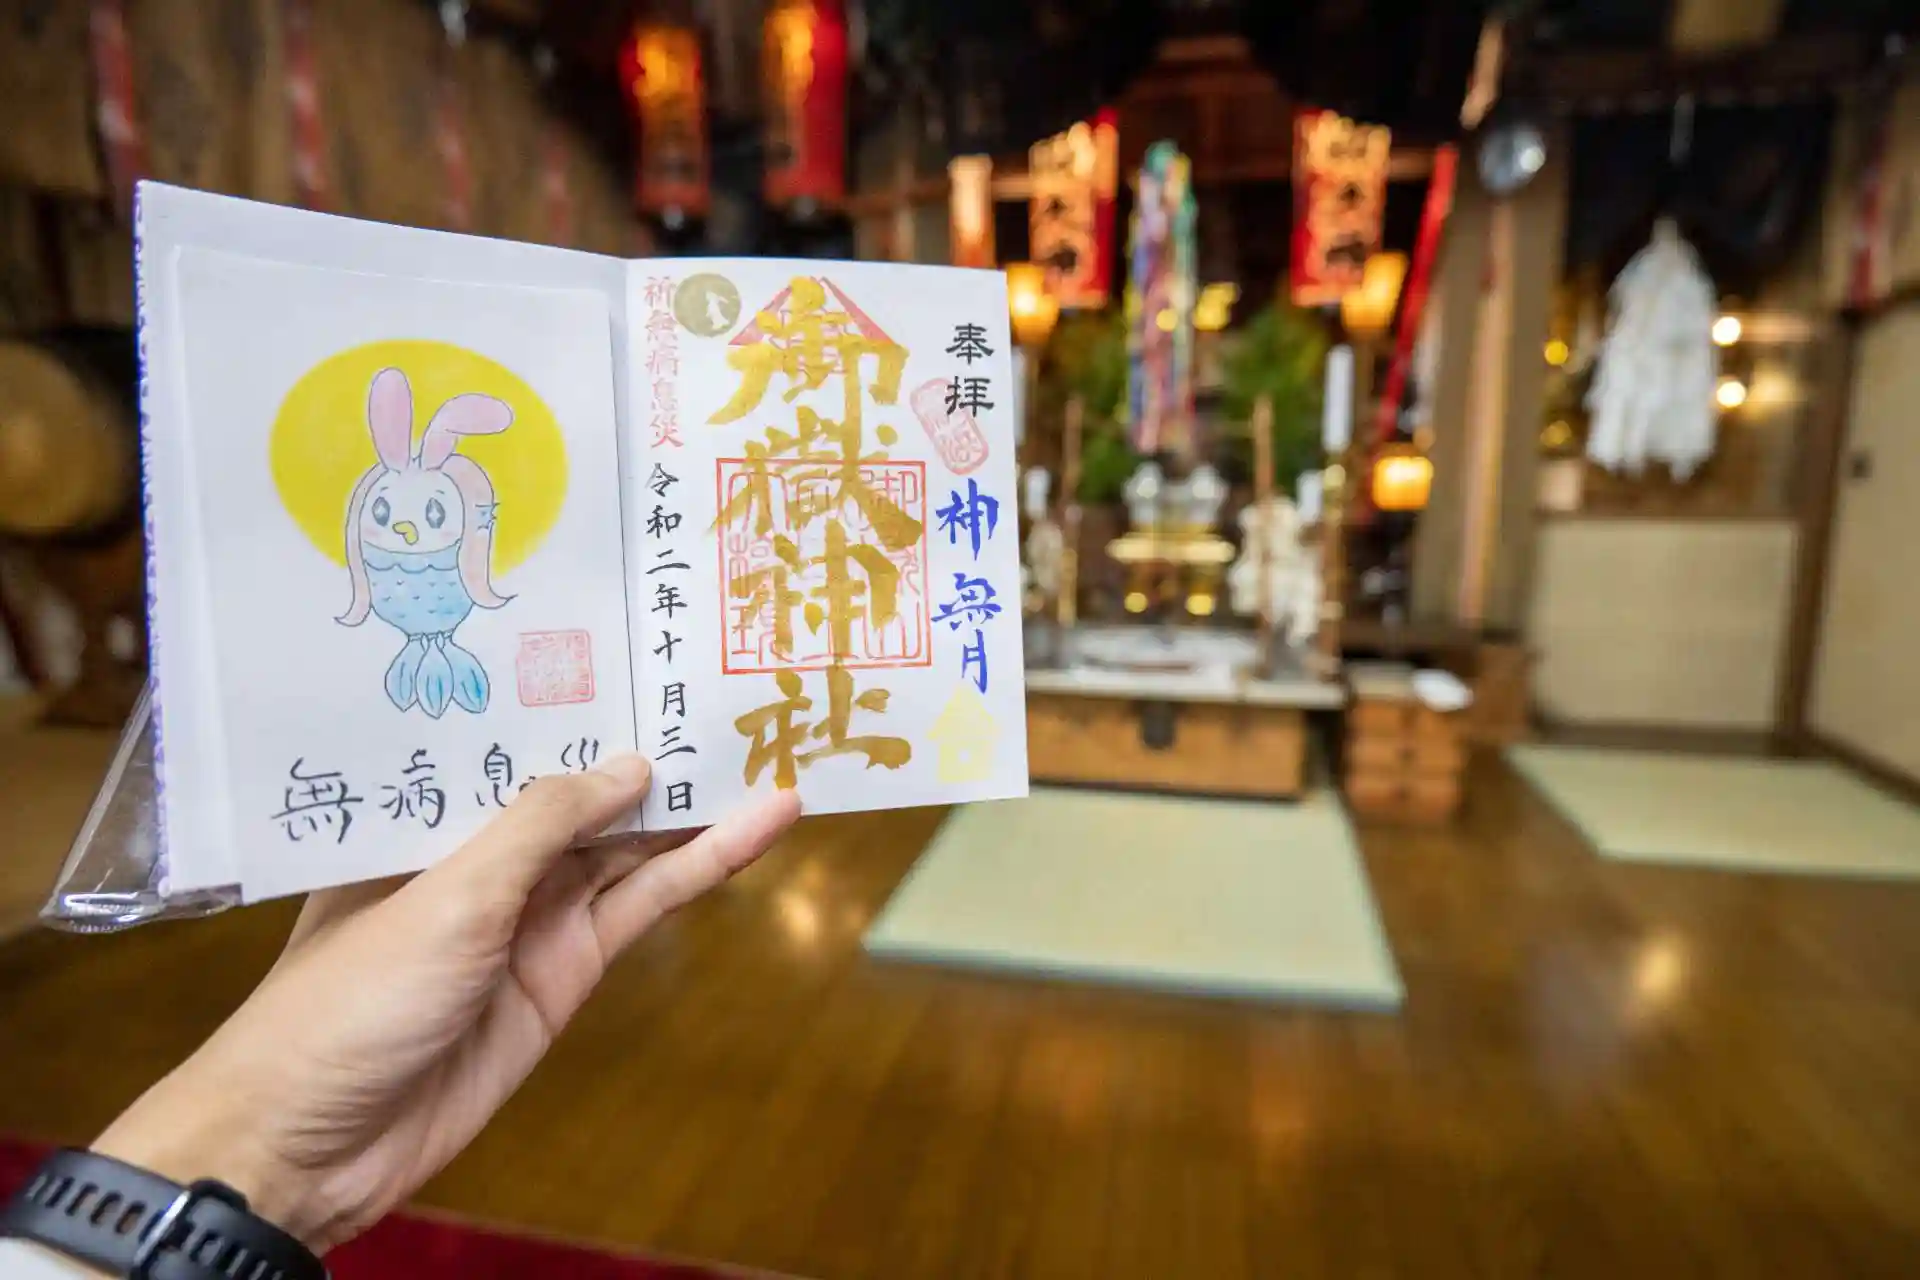 奉拝
神無月
御嶽神社
祈無病息災
令和二年十月三日
無病息災